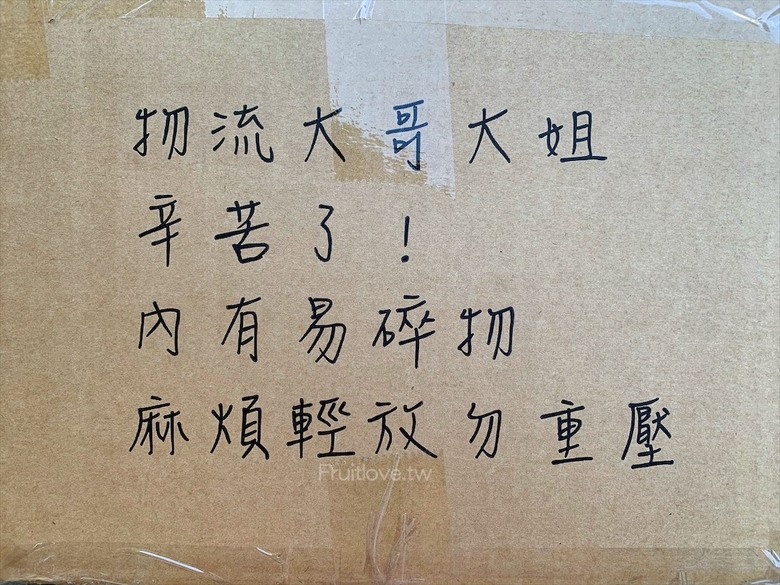 物流大哥大姐
辛苦了!
內有易碎物
麻煩輕放勿重壓
Fruitlove.tw